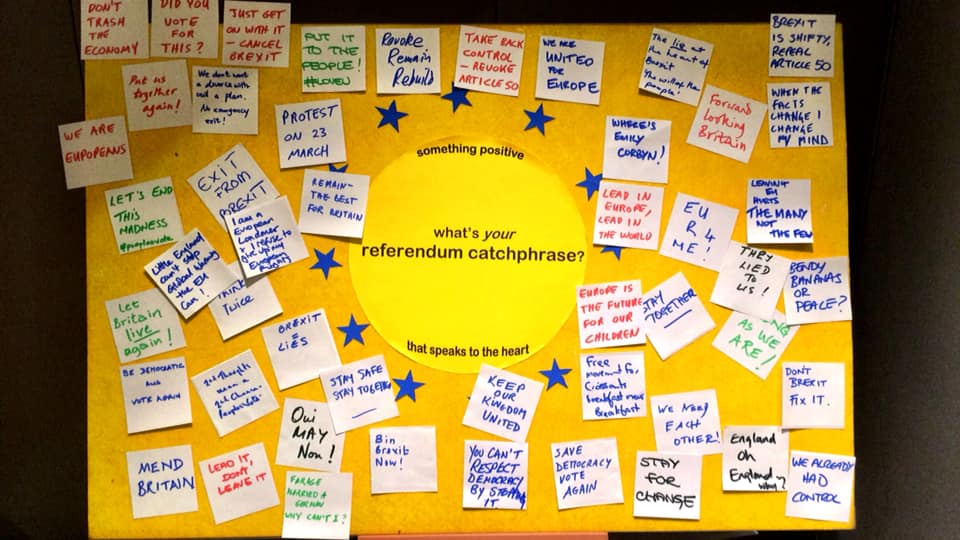 DON'T
TRASH
THE
ECONOMY
DID YOU
VOTE
FOR
THIS?
JUST GET
ON WITH IT
– CANCEL
BREXIT
PUT IT
TO THE
PEOPLE!
Revoke
Remain
Rebuild
TAKE BACK
CONTROL
– REVOKE
ARTICLE 50
WE ARE
UNITED
FOR
EUROPE
The lie at
the heart of
Brexit
The will of the
people!
BREXIT
IS SHIFTY,
REPEAL
ARTICLE 50
Put us
together
again!
We don't want
a divorce with
out a plan.
An emergency
exit!
PROTEST
ON 23
MARCH
Forward
looking
Britain
WHEN THE
FACTS
CHANGE I
CHANGE
MY MIND
WE ARE
EUROPEANS
WHERE'S
EMILY
CORBYN!
something positive
what's your
referendum catchphrase?
that speaks to the heart
LET'S END
THIS
MADNESS
#peoplesvote
EXIT
FROM
BREXIT
REMAIN–
THE BEST
FOR BRITAIN
I am a
European
Londoner
& I refuse to
give up my
European
LEAD IN
EUROPE,
LEAD IN
THE WORLD
EU
R 4
ME!
LEAVING
EU
HURTS
THE MANY
NOT
THE FEW
Little England
can't stop
global
the EU
can!
THINK
TWICE
THEY
LIED
TO
US!
BENDY
BANANAS
OR
PEACE?
Let
Britain
live
again!
BREXIT
=
LIES
EUROPE IS
THE FUTURE
FOR OUR
CHILDREN
STAY
TOGETHER
AS WE
ARE!
BE DEMOCRATIC
AND
VOTE AGAIN
2nd thoughts
mean a
2nd Chance
STAY SAFE
STAY TOGETHER
KEEP
OUR
KINGDOM
UNITED
Free
movement for
Croissants
Breakfast means
Breakfast
DONT
BREXIT
FIX IT.
WE NEED
EACH
OTHER!
Oui
MAY
Non!
Bin
Brexit
Now!
MEND
BRITAIN
LEAD IT,
DON'T
LEAVE IT
FARAGE
MARRIED A
GERMAN
WHY CAN'T I?
YOU CAN'T
RESPECT
DEMOCRACY
BY
IT
SAVE
DEMOCRACY
VOTE
AGAIN
STAY
FOR
CHANGE
England
oh
England
why?
WE ALREADY
HAD
CONTROL